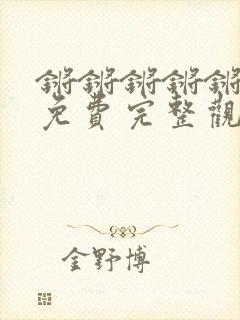 锵锵锵锵锵
免費完整觀
金野博